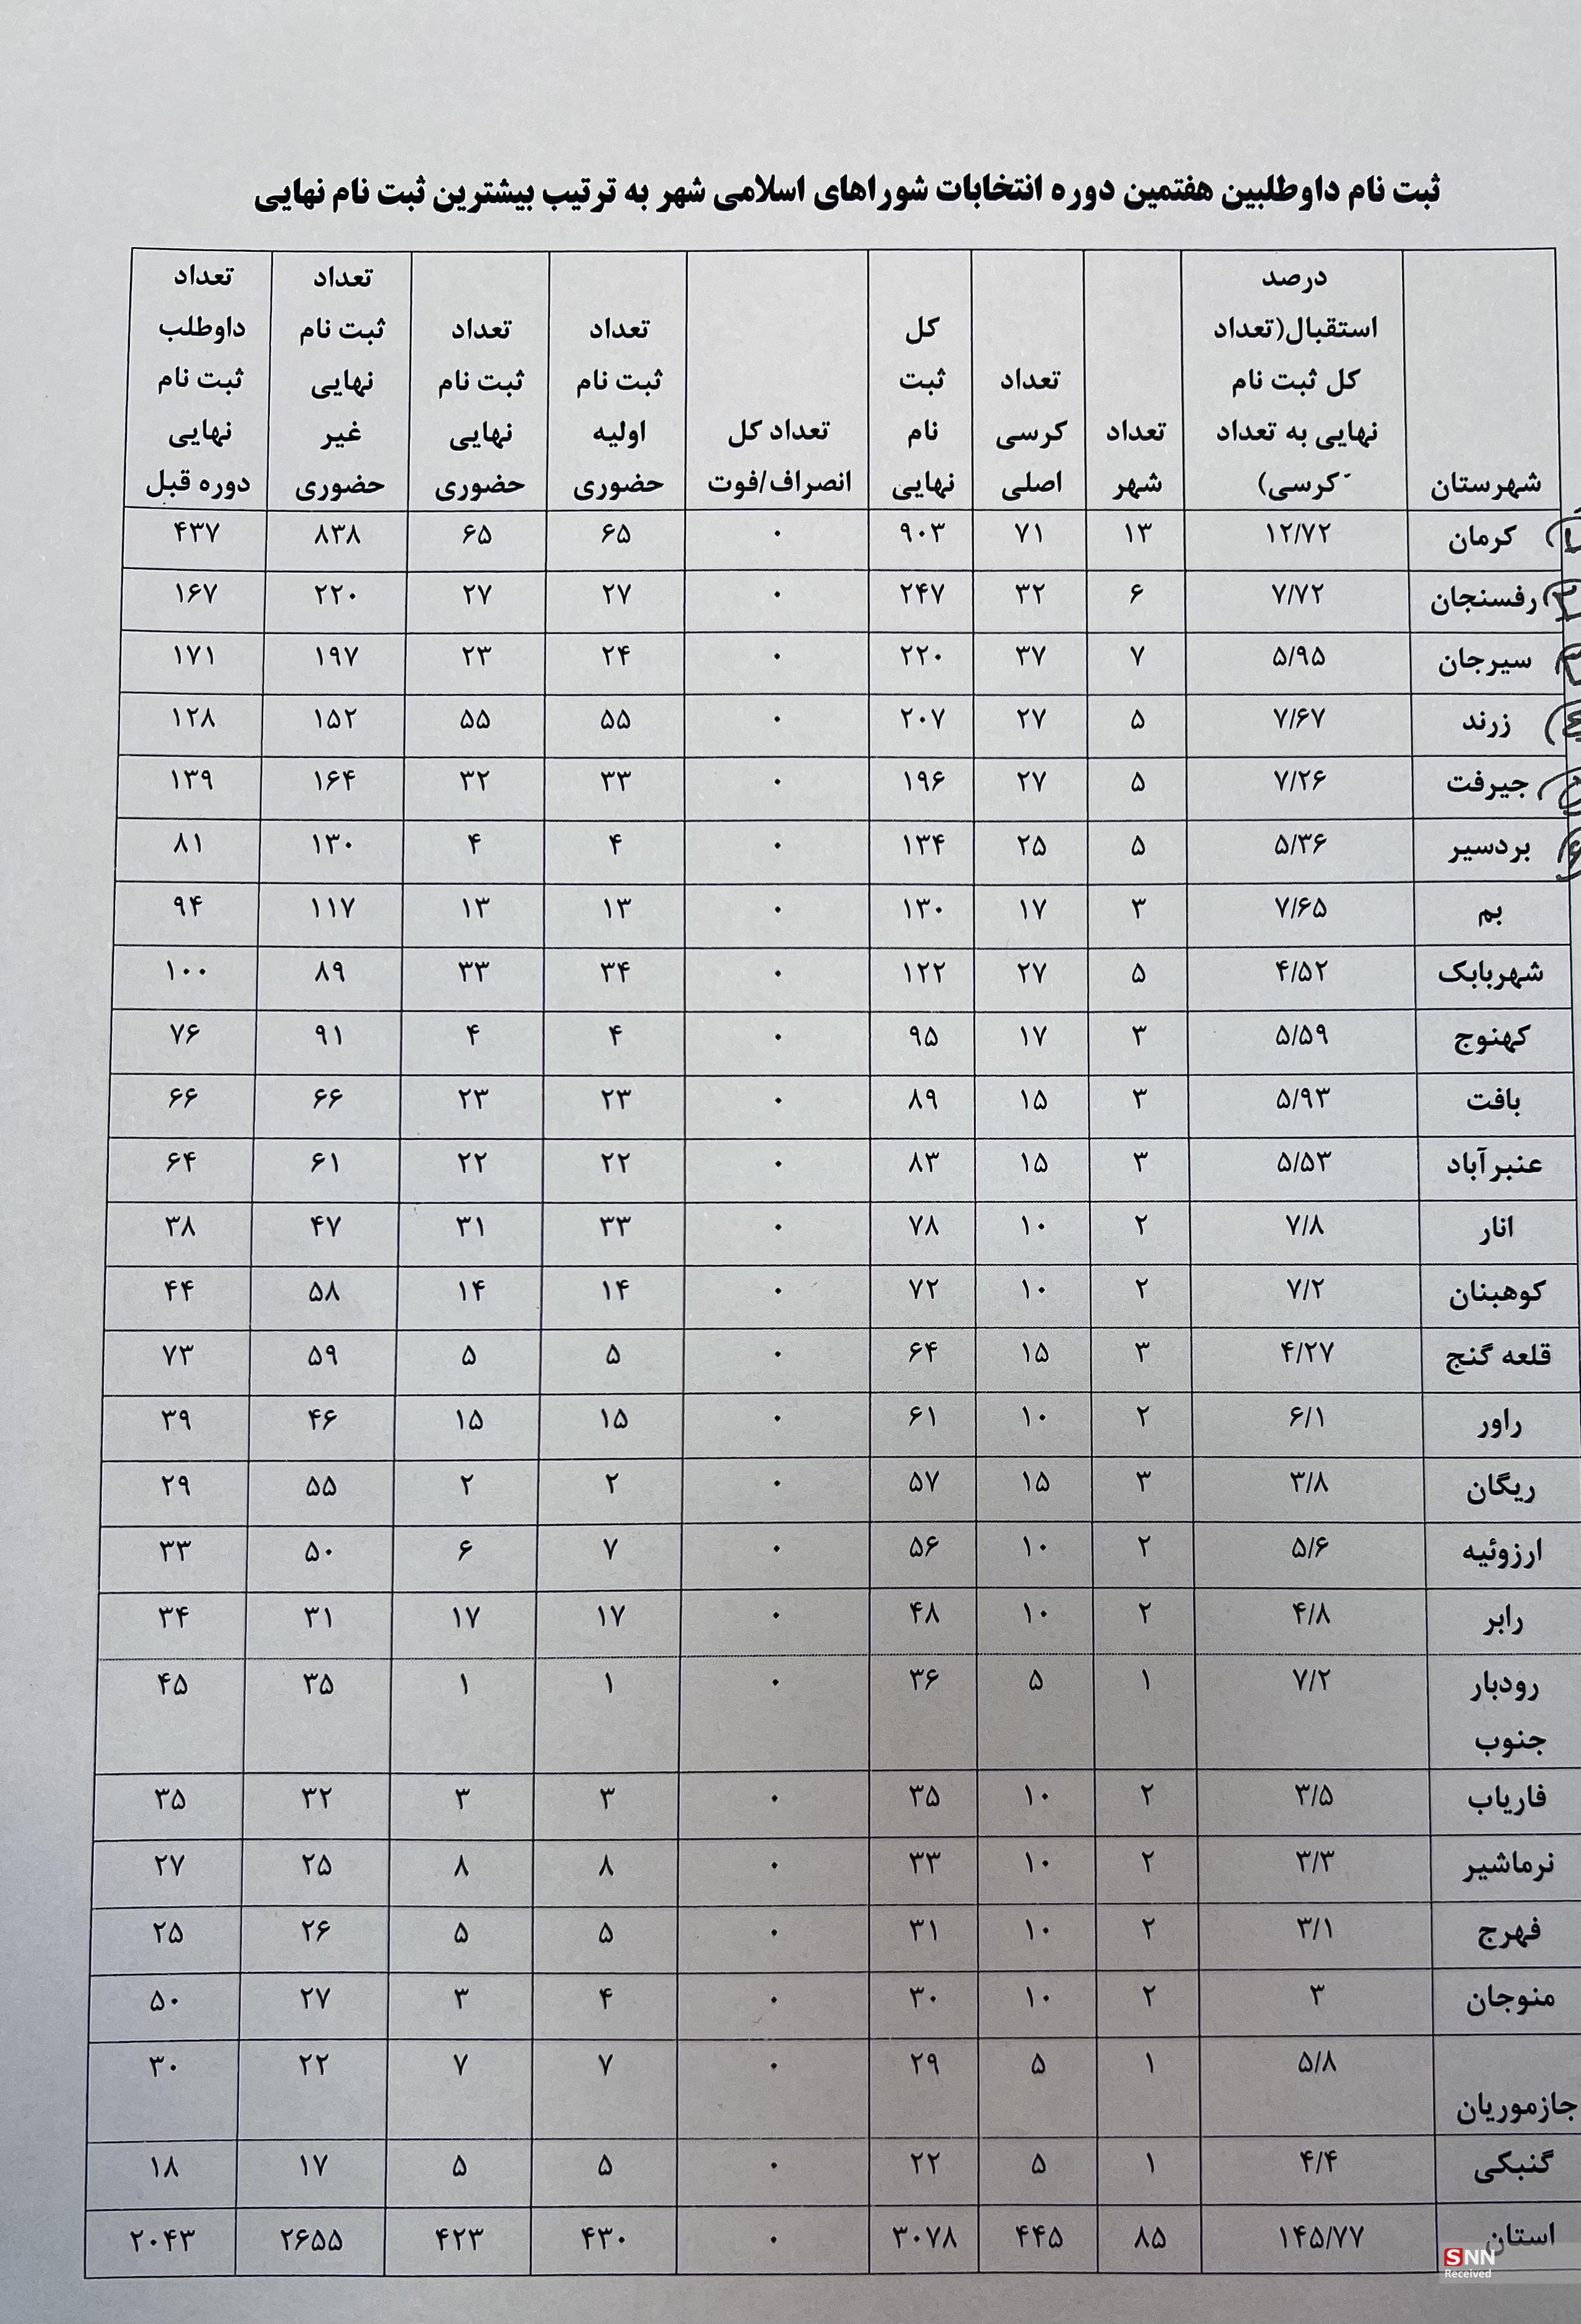 ثبت نام داوطلبین هفتمین دوره انتخابات شوراهای اسلامی شهر به ترتیب بیشترین ثبت نام نهایی
شهرستان درصد استقبال(تعداد کل ثبت نام نهایی به تعداد کرسی) تعداد شهر تعداد کرسی اصلی کل ثبت نام نهایی تعداد کل انصراف/فوت تعداد ثبت نام اولیه حضوری تعداد ثبت نام نهایی حضوری تعداد ثبت نام نهایی غیر حضوری تعداد داوطلب ثبت نام نهایی دوره قبل
کرمان ۱۲/۷۲ ۱۳ ۷۱ ۹۰۳ ۰ ۶۵ ۶۵ ۸۳۸ ۴۳۷
رفسنجان ۷/۷۲ ۶ ۳۲ ۲۴۷ ۰ ۲۷ ۲۷ ۲۲۰ ۱۶۷
سیرجان ۵/۹۵ ۷ ۳۷ ۲۲۰ ۰ ۲۴ ۲۳ ۱۹۷ ۱۷۱
زرند ۷/۶۷ ۵ ۲۷ ۲۰۷ ۰ ۵۵ ۵۵ ۱۵۲ ۱۲۸
جیرفت ۷/۲۶ ۵ ۲۷ ۱۹۶ ۰ ۳۳ ۳۲ ۱۶۴ ۱۳۹
بردسیر ۵/۳۶ ۵ ۲۵ ۱۳۴ ۰ ۴ ۴ ۱۳۰ ۸۱
بم ۷/۶۵ ۳ ۱۷ ۱۳۰ ۰ ۱۳ ۱۳ ۱۱۷ ۹۴
شهربابک ۴/۵۲ ۵ ۲۷ ۱۲۲ ۰ ۳۴ ۳۳ ۸۹ ۱۰۰
کهنوج ۵/۵۹ ۳ ۱۷ ۹۵ ۰ ۴ ۴ ۹۱ ۷۶
بافت ۵/۹۳ ۳ ۱۵ ۸۹ ۰ ۲۳ ۲۳ ۶۶ ۶۶
عنبرآباد ۵/۵۳ ۳ ۱۵ ۸۳ ۰ ۲۲ ۲۲ ۶۱ ۶۴
انار ۷/۸ ۲ ۱۰ ۷۸ ۰ ۳۳ ۳۱ ۴۷ ۳۸
کوهبنان ۷/۲ ۲ ۱۰ ۷۲ ۰ ۱۴ ۱۴ ۵۸ ۴۴
قلعه گنج ۴/۲۷ ۳ ۱۵ ۶۴ ۰ ۵ ۵ ۵۹ ۷۳
راور ۶/۱ ۲ ۱۰ ۶۱ ۰ ۱۵ ۱۵ ۴۶ ۳۹
ریگان ۳/۸ ۳ ۱۵ ۵۷ ۰ ۲ ۲ ۵۵ ۲۹
ارزوئیه ۵/۶ ۲ ۱۰ ۵۶ ۰ ۷ ۶ ۵۰ ۳۳
رابر ۴/۸ ۲ ۱۰ ۴۸ ۰ ۱۷ ۱۷ ۳۱ ۳۴
رودبار جنوب ۷/۲ ۱ ۵ ۳۶ ۰ ۱ ۱ ۳۵ ۴۵
فاریاب ۳/۵ ۲ ۱۰ ۳۵ ۰ ۳ ۳ ۳۲ ۳۵
نرماشیر ۳/۳ ۲ ۱۰ ۳۳ ۰ ۸ ۸ ۲۵ ۲۷
فهرج ۳/۱ ۲ ۱۰ ۳۱ ۰ ۵ ۵ ۲۶ ۲۵
منوجان ۳ ۲ ۱۰ ۳۰ ۰ ۴ ۳ ۲۷ ۵۰
جازموریان ۵/۸ ۱ ۵ ۲۹ ۰ ۷ ۷ ۲۲ ۳۰
گنبکی ۴/۴ ۱ ۵ ۲۲ ۰ ۵ ۵ ۱۷ ۱۸
استان ۱۴۵/۷۷ ۸۵ ۴۴۵ ۳۰۷۸ ۰ ۴۳۰ ۴۲۳ ۲۶۵۵ ۲۰۴۳
SNN
Received